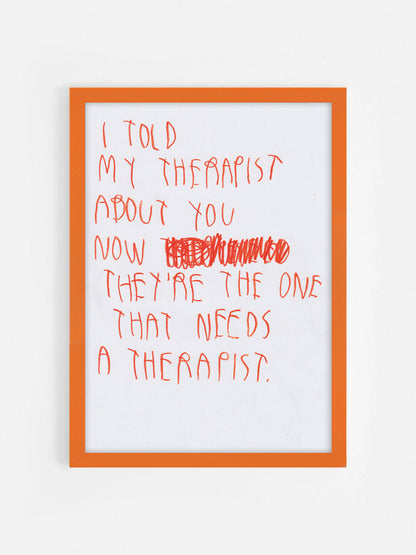 I TOLD
MY THERAPIST
ABOUT YOU
NOW
THEY'RE THE ONE
THAT NEEDS
A THERAPIST.